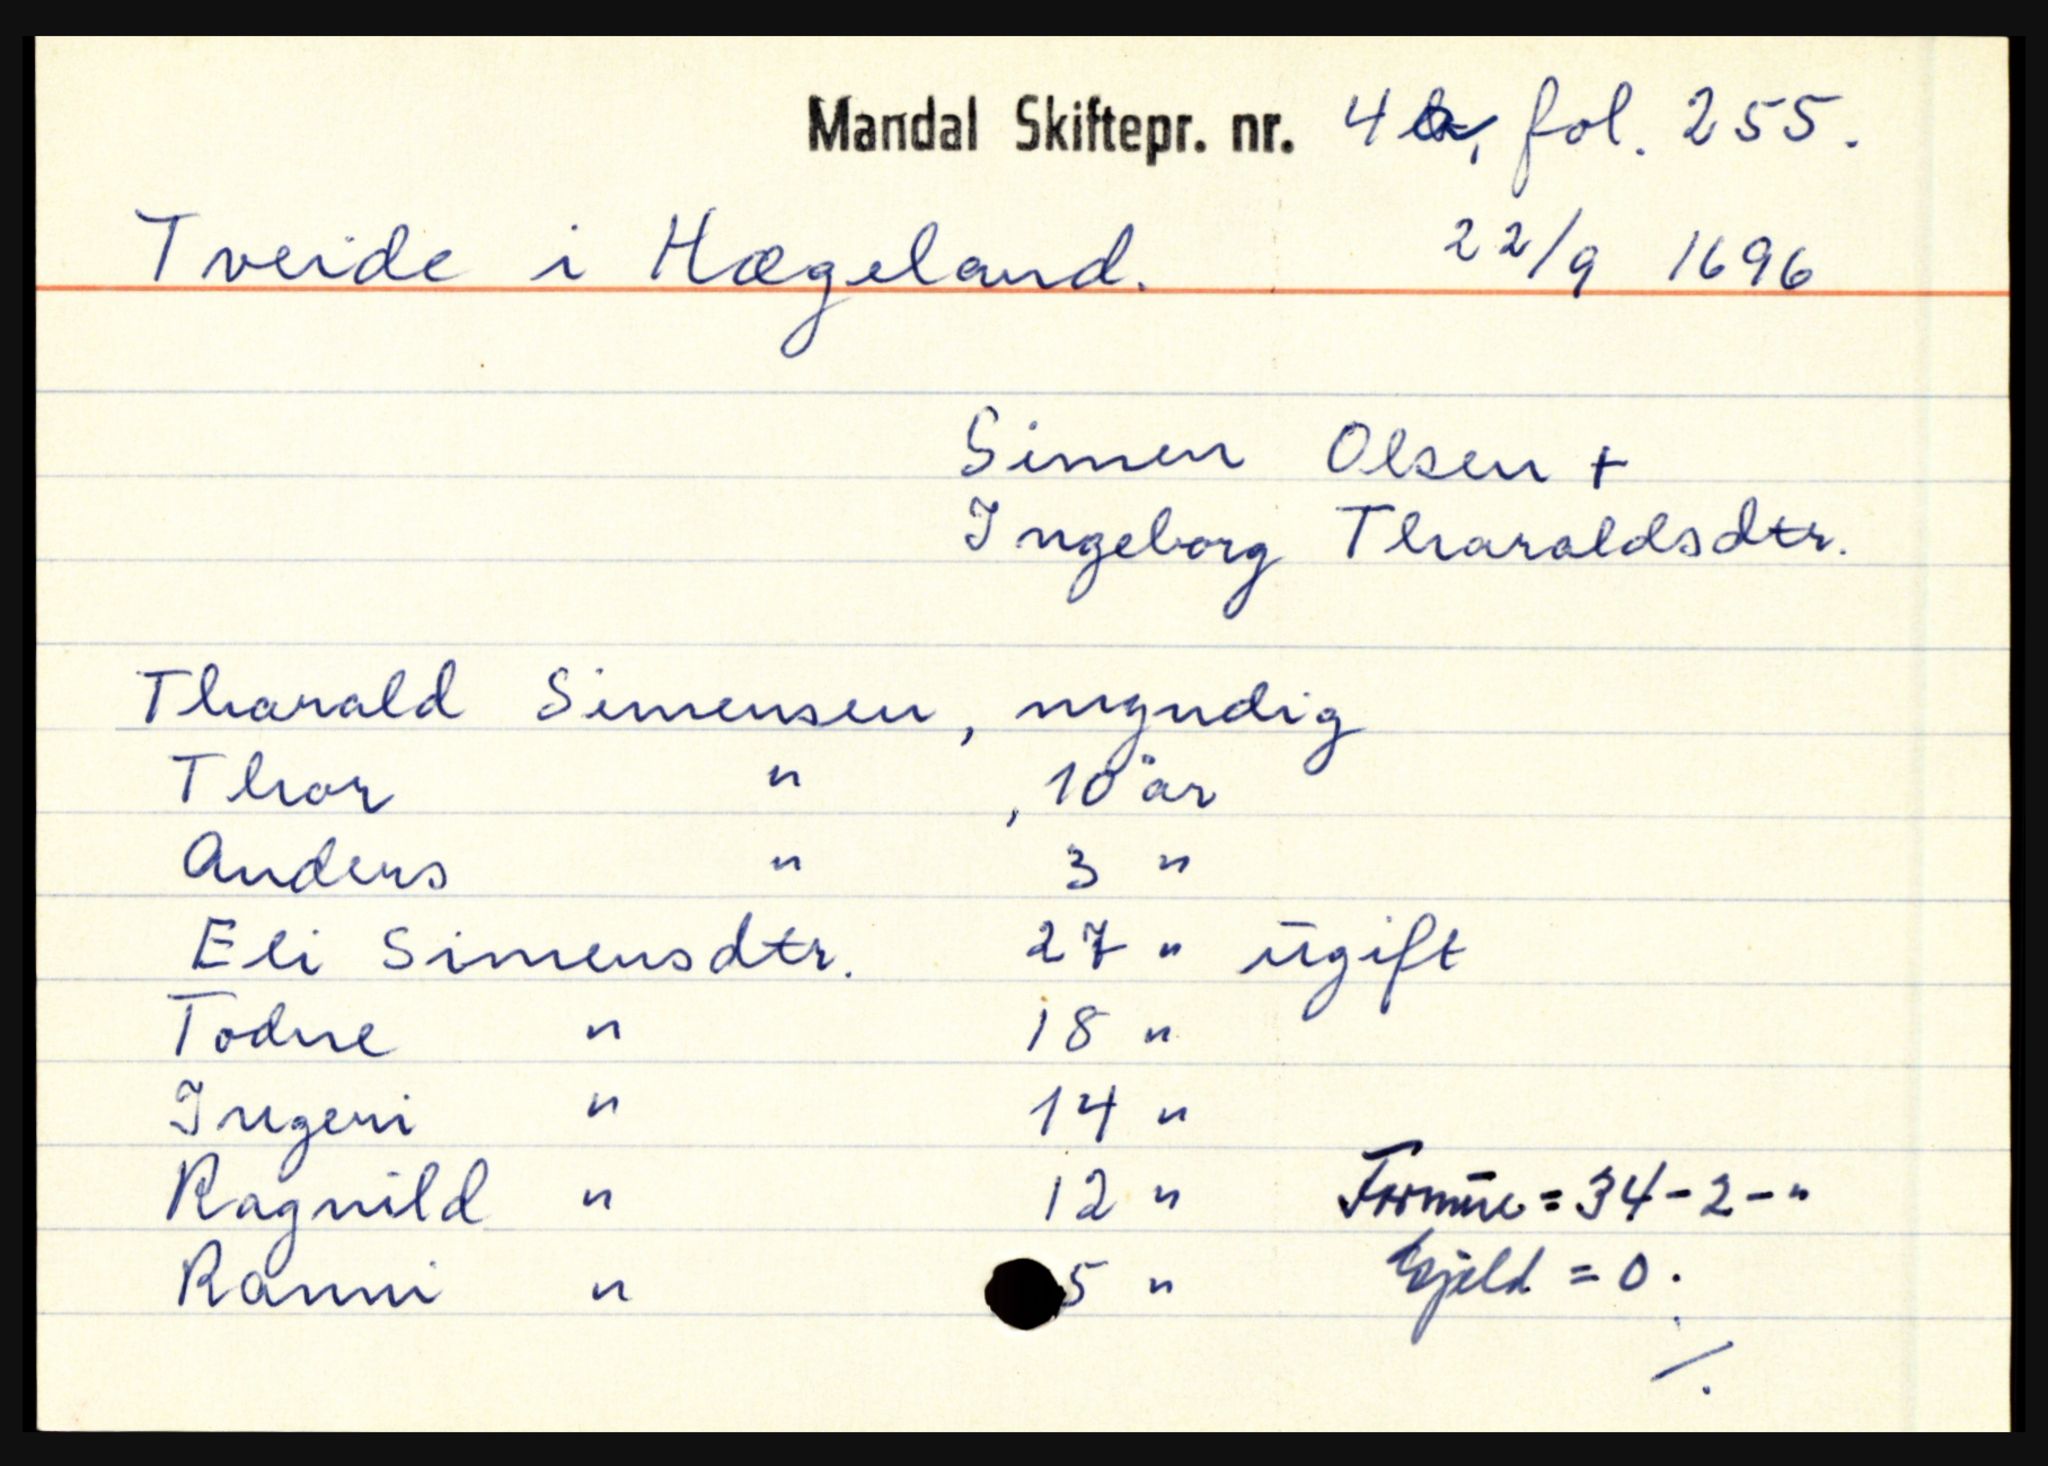 Mandal Skiftepr. nr. 4 fol. 255.
Tveide i Hægeland. 22/9 1696
Simen Olsen +
Ingeborg Tharaldsdtr.
Tharald Simensen, myndig
Thor " , 10 år
Anders " 3 "
Eli Simensdtr. 27 " ugift
Todne " 18 "
Ingeri " 14 "
Ragnild " 12 " Formue = 34-2-"
Ranni " 5 " Gjeld = 0.